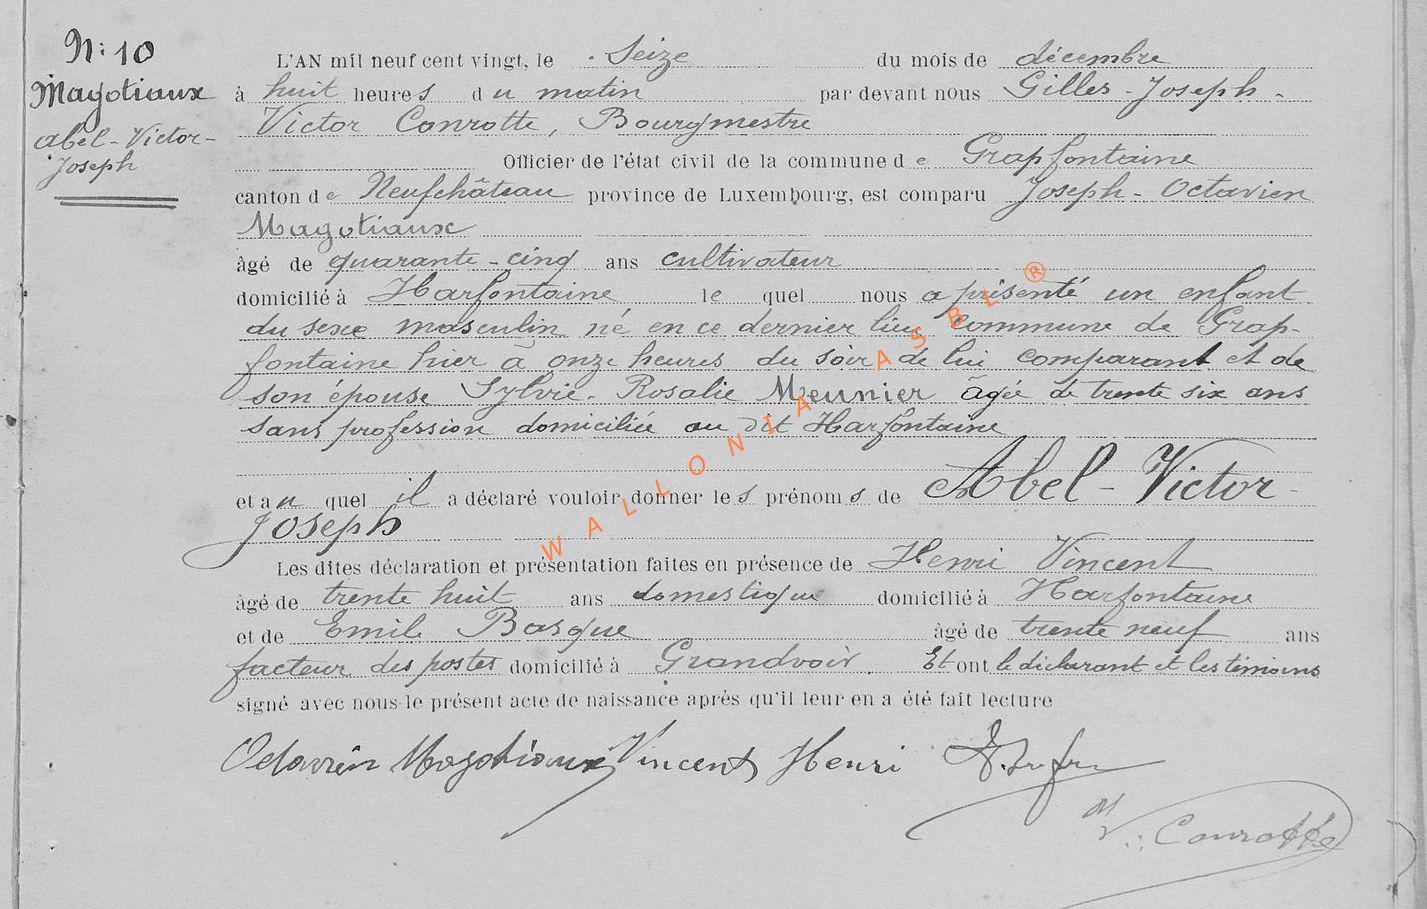 N: 10
Magotiaux
Abel-Victor-
Joseph
L'AN mil neuf cent vingt, le Seize du mois de décembre
à huit heures du matin par devant nous Gilles-Joseph-
Victor Conrotte, Bourgmestre
Officier de l'état civil de la commune de Grapfontaine
canton de Neufchâteau province de Luxembourg, est comparu Joseph-Octavien
Magotiaux
âgé de quarante-cinq ans cultivateur
domicilié à Harfontaine lequel nous a présenté un enfant
du sexe masculin né en ce dernier lieu commune de Grap-
fontaine hier à onze heures du soir de lui comparant et de
son épouse Sylvie-Rosalie Meunier âgée de trente six ans
sans profession domiciliée au dit Harfontaine
et au quel il a déclaré vouloir donner les prénoms de Abel-Victor-
Joseph
Les dites déclaration et présentation faites en présence de Henri Vincent
âgé de trente huit ans domestique domicilié à Harfontaine
et de Emile Basque âgé de trente neuf ans
facteur des postes domicilié à Grandvoir. Et ont le déclarant et les témoins
signé avec nous le présent acte de naissance après qu'il leur en a été fait lecture
Octavien Magotiaux Vincent Henri
V. Conrotte
WALLONIA ASBL ®